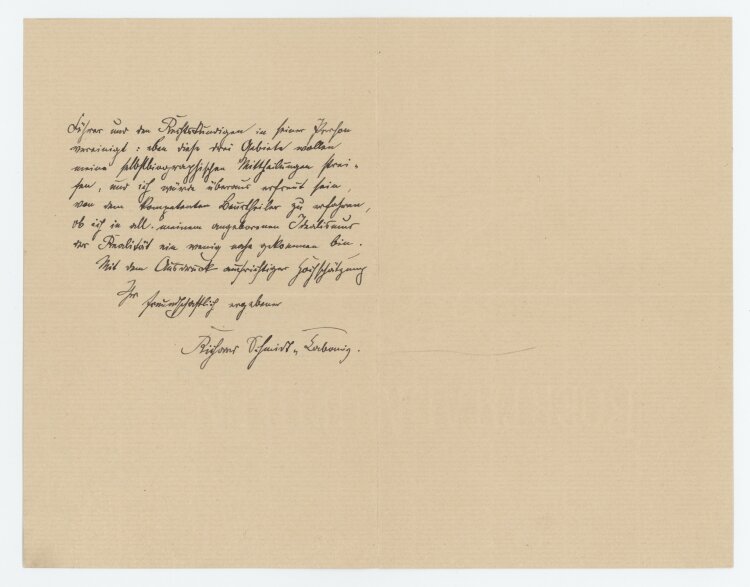 Führer und den Rechtskundigen in seiner Person
vereinigt: eben diese drei Gebiete wollen
meine selbstbiographischen Mittheilungen strei-
fen, und ich würde überaus erfreut sein,
von dem kompetenten Beurtheiler zu erfahren,
ob ich in all meinem angeborenen Idealismus
der Realität ein wenig nahe gekommen bin.
Mit dem Ausdruck aufrichtiger Hochschätzung
Ihr freundschaftlich ergebener
Richard Schmidt-Cabanis.